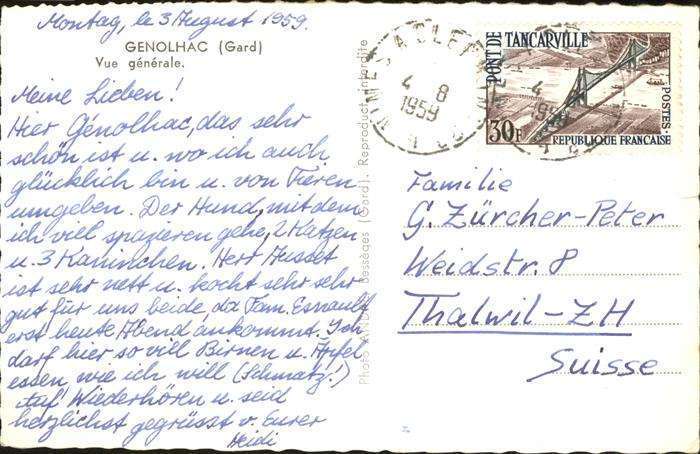 Montag, le 3 August 1959.
GENOLHAC (Gard)
Vue générale.
Meine Lieben!
Hier Génolhac, das sehr
schön ist u. wo ich auch
glücklich bin u. von Tieren
umgeben. Der Hund, mit dem
ich viel spazieren gehe, 2 Katzen
u. 3 Kaninchen. Herr Musset
ist sehr nett u. kocht sehr sehr
gut für uns beide, da Fam. Esnault
erst heute Abend ankommt. Ich
darf hier so vill Birnen u. Äpfel
essen wie ich will (Schmatz!)
Auf Wiederhören u. seid
herzlichst gegrüsst v. Eurer
Heidi
Bessèges (Gard). Reproduct. interdite
4 8
1959
4
PONT DE TANCARVILLE
POSTES
30F
REPUBLIQUE FRANCAISE
Familie
G. Zürcher-Peter
Weidstr. 8
Thalwil-ZH
Suisse